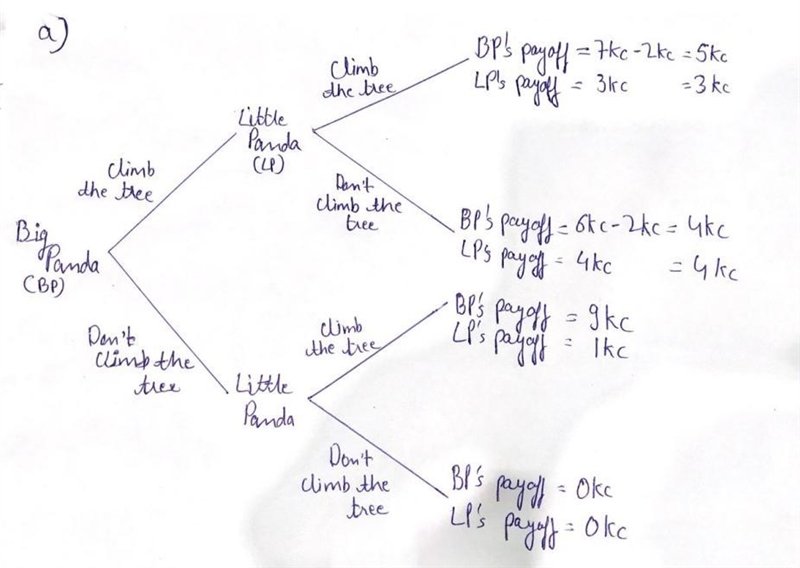 a)
BP's payoff = 7kc - 2kc = 5kc
LP's payoff = 3kc = 3kc
Climb
the tree
Little
Panda
(LP)
Climb
the tree
Don't
climb the
tree
BP's payoff = 6kc - 2kc = 4kc
LP's payoff = 4kc = 4kc
Big
Panda
(BP)
Don't
climb the
tree
Little
Panda
Climb
the tree
BP's payoff = 9kc
LP's payoff = 1kc
Don't
climb the
tree
BP's payoff = 0kc
LP's payoff = 0kc